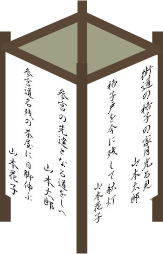 街道の格子の家月光る見
山本太郎
格子戸を今に残して献灯
山本花子
参宮の先達となる道をしへ
山本太郎
参宮道名残の茶屋に日脚伸ぶ
山本花子